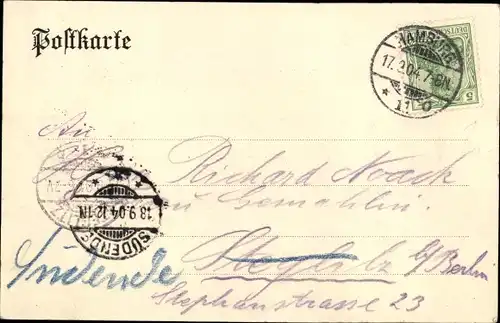 Postkarte
HAMBURG
17.9.04 7-8N.
* 11 o
DEUTSCHES
5
An
H. Richard Noack
zu Gemahlin.
Südende
Steglitz b/Berlin
Stephanstrasse 23
SÜDENDE
18.9.04.12-1N